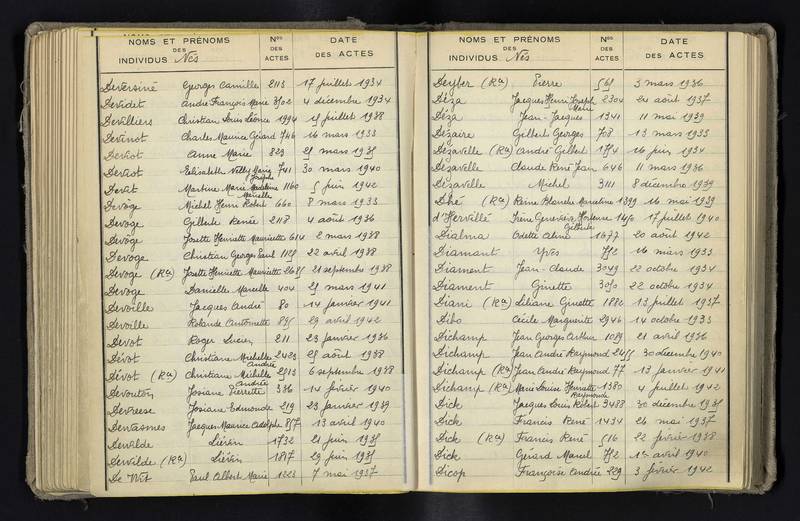 NOMS ET PRÉNOMS
DES
INDIVIDUS Nés
Nos
DES
ACTES
DATE
DES ACTES
Deversiné Georges Camille 2113 17 juillet 1934
Devidet André François Marie 3802 4 décembre 1934
Devilliers Christian Louis Léonce 1994 15 juillet 1938
Devinot Charles Maurice Gérard 746 16 mars 1933
Deviot Anne Marie 823 25 mars 1935
Deviot Elisabeth Nelly Marie 741 30 mars 1940
Joseph
Devit Martine Marie Madeleine 1160 5 juin 1942
Marcelle
Devoge Michel Henri Robert 660 8 mars 1933
Devoge Gilberte Renée 2118 4 août 1936
Devoge Josette Henriette Mauricette 614 2 mars 1938
Devoge Christian Georges Paul 1125 22 avril 1938
Devoge (Ra) Josette Henriette Mauricette 2685 21 septembre 1938
Devoge Danielle Marcelle 404 25 mars 1941
Devoille Jacques André 80 14 janvier 1941
Devoille Rolande Antoinette 895 29 avril 1942
Devot Roger Lucien 211 23 janvier 1936
Dévot Christiane Michelle 2423 25 août 1938
Andrée
Dévot (Ra) Christiane Michelle 2513 6 septembre 1938
Andrée
Devouton Josiane Pierrette 336 14 février 1940
Devreese Josiane Edmonde 219 23 janvier 1939
Dewasmes Jacques Maurice Adolphe 857 13 avril 1940
Dewilde Liévin 1732 21 juin 1935
Dewilde (Ra) Liévin 1817 29 juin 1935
De Wit Paul Albert Marie 1223 7 mai 1937
NOMS ET PRÉNOMS
DES
INDIVIDUS Nés
Nos
DES
ACTES
DATE
DES ACTES
Deyber (Ra) Pierre 565 3 mars 1936
Déza Jacques Henri Joseph 2304 24 août 1937
Marie
Déza Jean-Jacques 1341 11 mai 1939
Dézaire Gilbert Georges 708 13 mars 1933
Dézaville (Ra) André Gilbert 1754 16 juin 1934
Dézaville Claude René Jean 646 11 mars 1936
Dézaville Michel 3111 8 décembre 1939
Dhé (Ra) Reine Blanche Marceline 1399 16 mai 1939
d'Hervillé Irène Geneviève Hortense 1450 17 juillet 1940
Gilberte
Dialma Odette Aline 1677 20 août 1942
Diamant Yves 752 16 mars 1933
Diament Jean-Claude 3049 22 octobre 1934
Diament Ginette 3050 22 octobre 1934
Diani (Ra) Liliane Ginette 1882 13 juillet 1937
Dibo Cécile Marguerite 2946 14 octobre 1933
Dichamp Jean Georges Arthur 1089 21 avril 1936
Dichamp Jean André Raymond 2455 30 décembre 1940
Dichamp (Ra) Jean André Raymond 77 13 janvier 1941
Dichamp (Ra) Marie Louise Henriette 1380 4 juillet 1942
Raymonde
Dick Jacques Louis Robert 3488 30 décembre 1935
Dick Francis René 1434 26 mai 1937
Dick (Ra) Francis René 516 22 février 1938
Dick Gérard Marcel 752 1er avril 1940
Dicop Françoise Andrée 229 3 février 1942